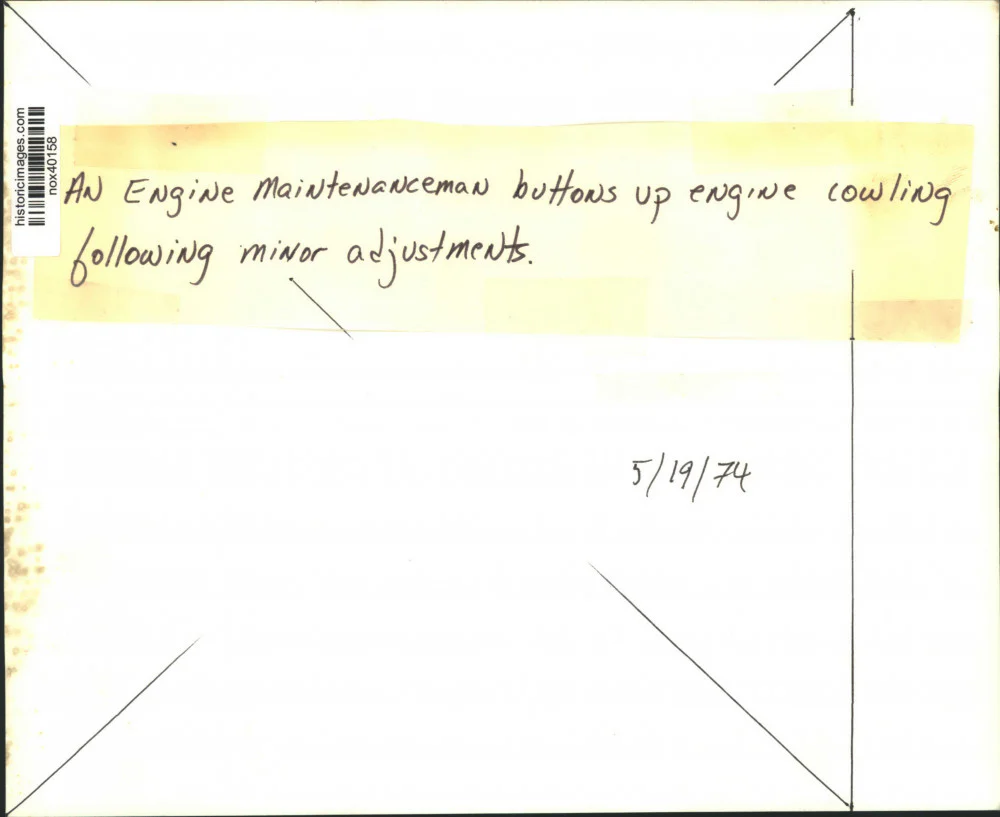 historicimages.com
nox40158
AN ENgiNe MaiNteNaNcemaN buttoNs up eNgiNe cowliNg
followiNg miNor adjustmeNts.
5/19/74